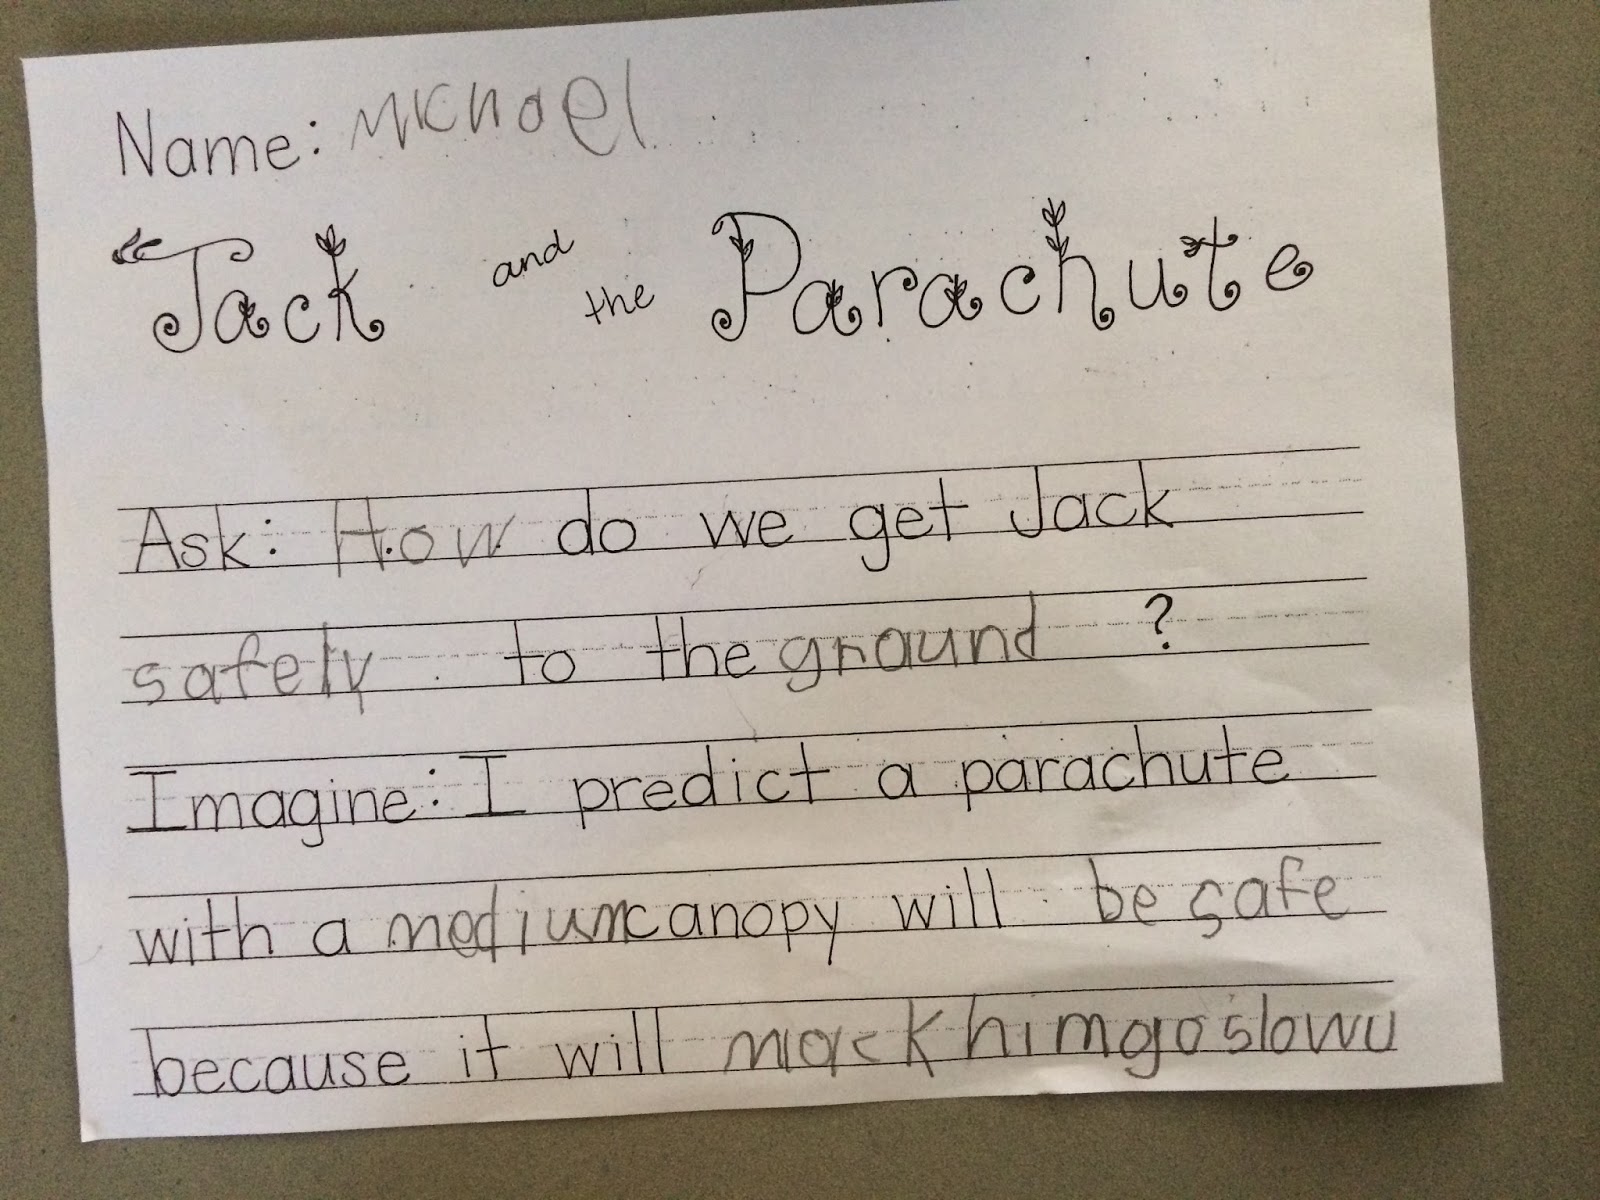 Name: Michael
Jack and the Parachute
Ask: How do we get Jack
safely to the ground ?
Imagine: I predict a parachute
with a medium canopy will be safe
because it will mack him go slowu